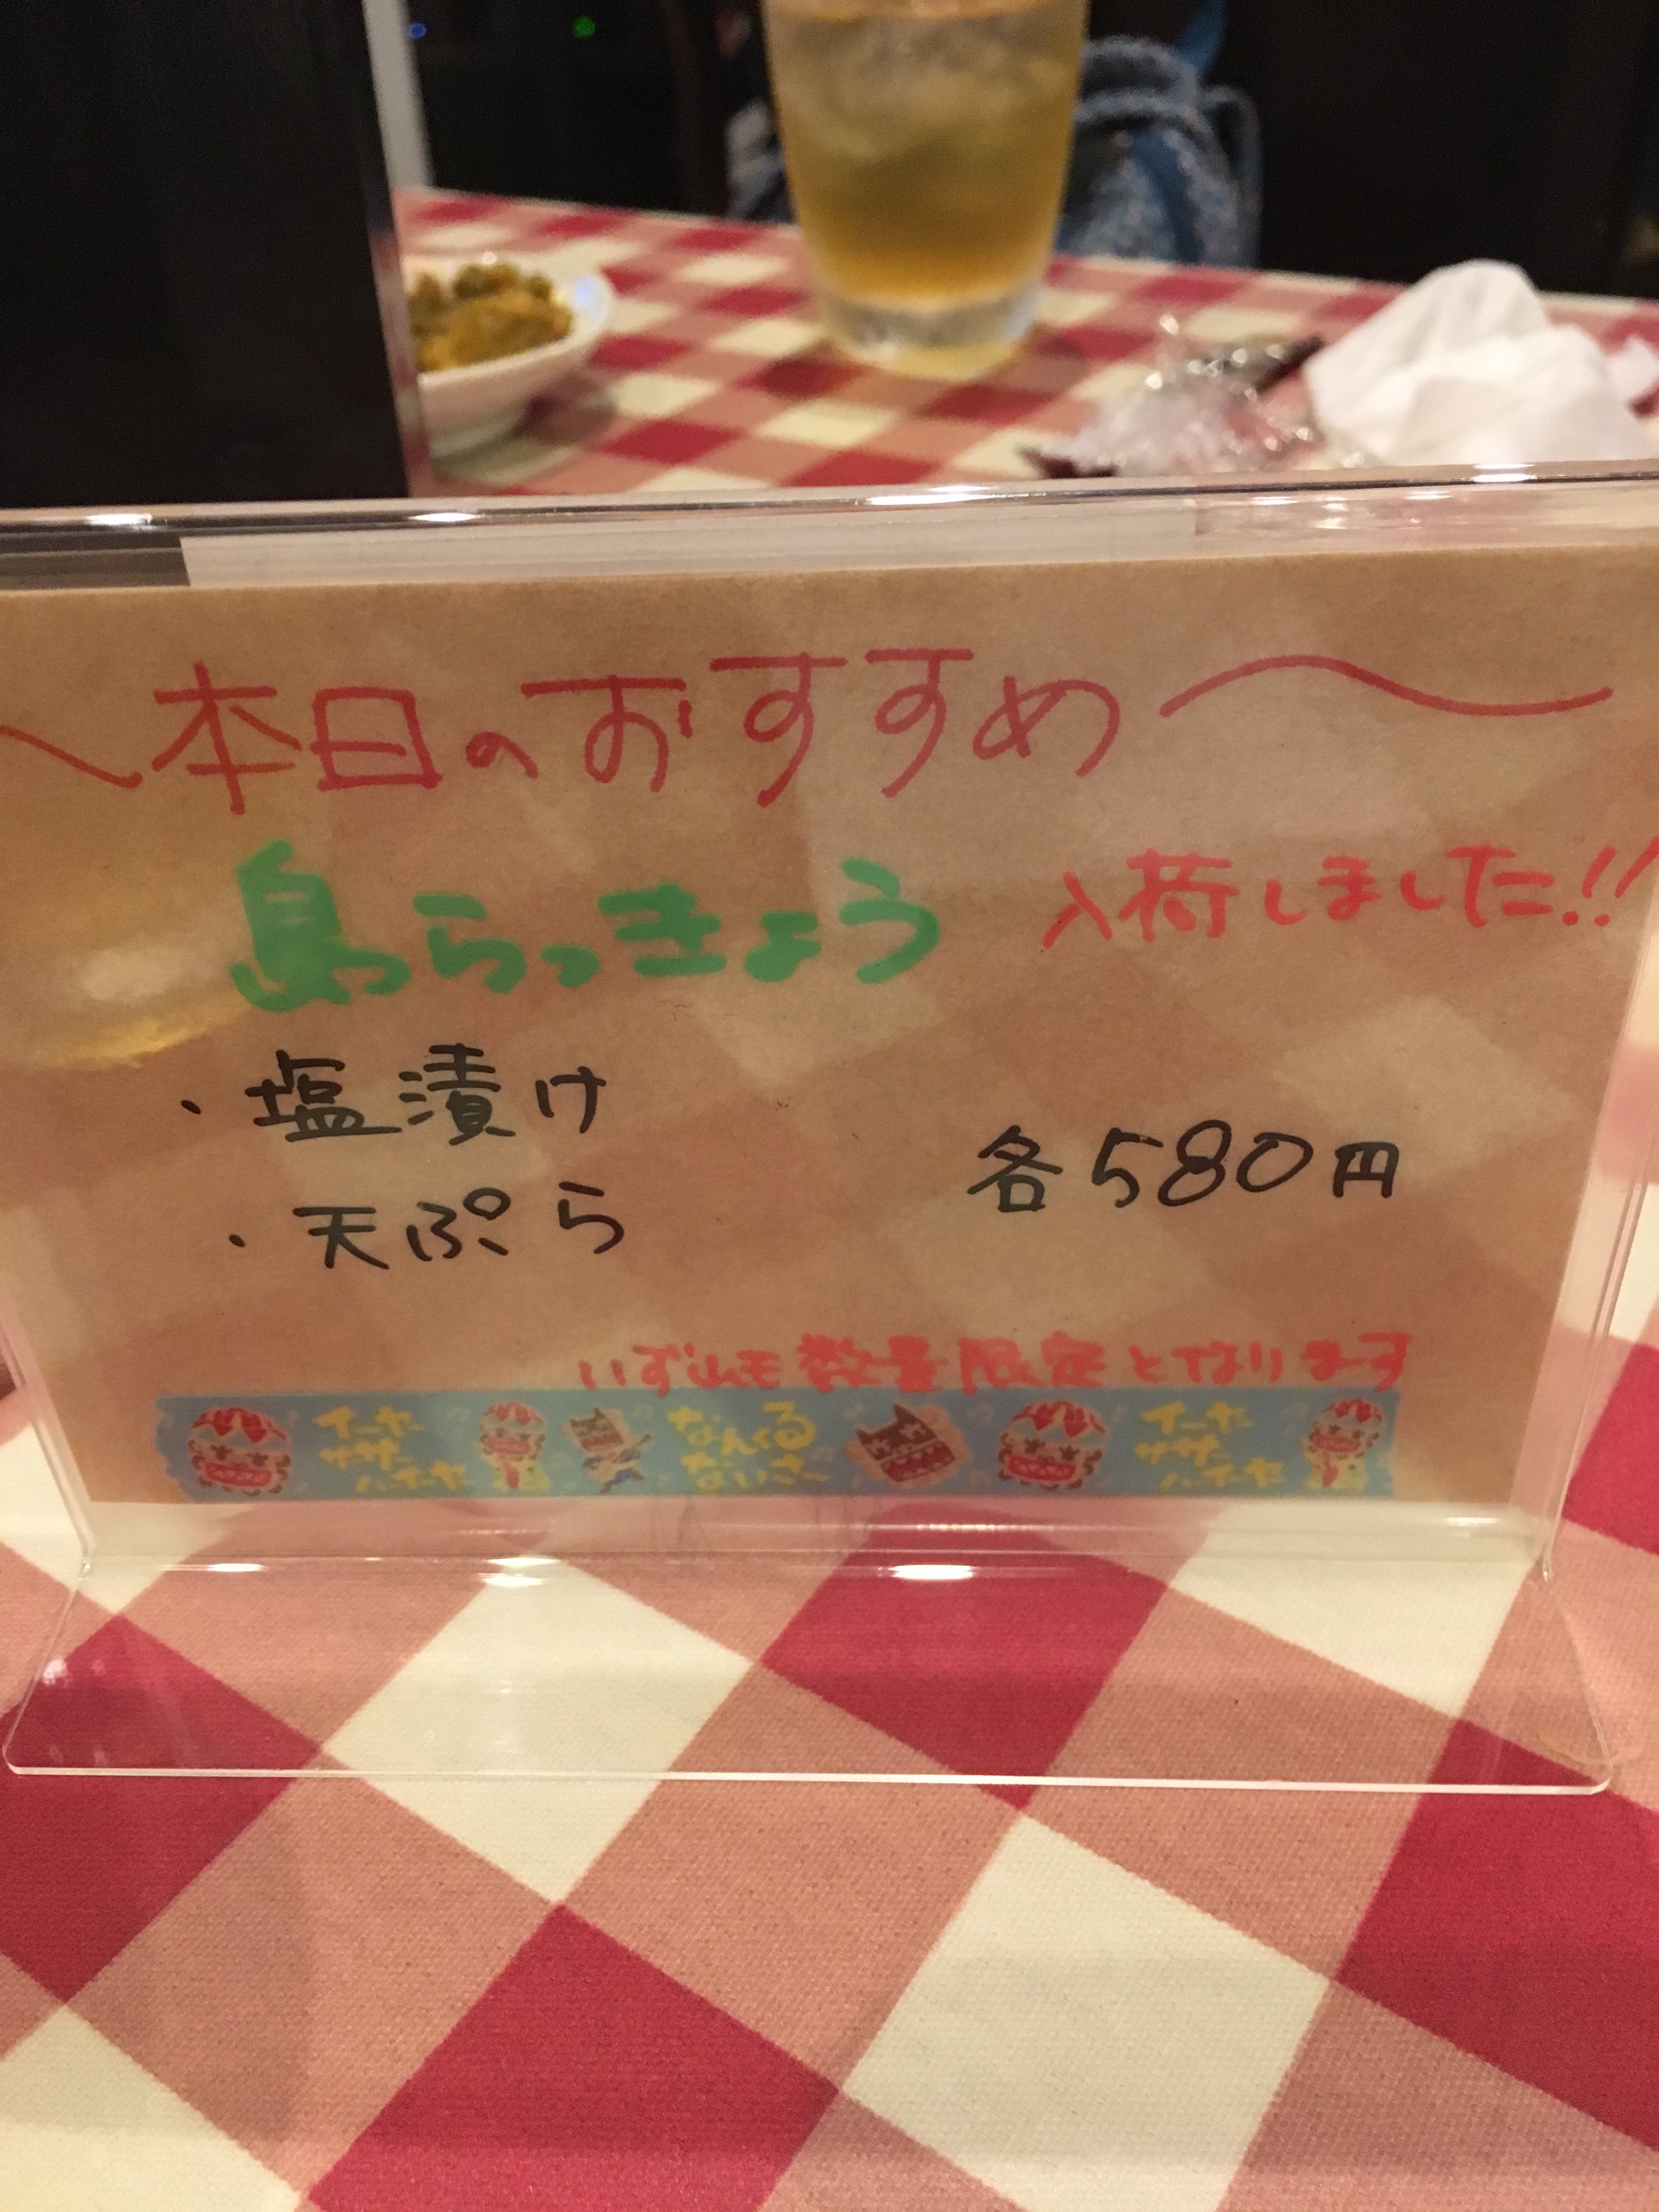 〜本日のおすすめ〜
島らっきょう 入荷しました!!
・塩漬け
・天ぷら
各580円
いずれも数量限定となります
イーヤー なんくる イーヤー
サーサー ないさー サーサー
ハーイーヤ ハーイーヤ